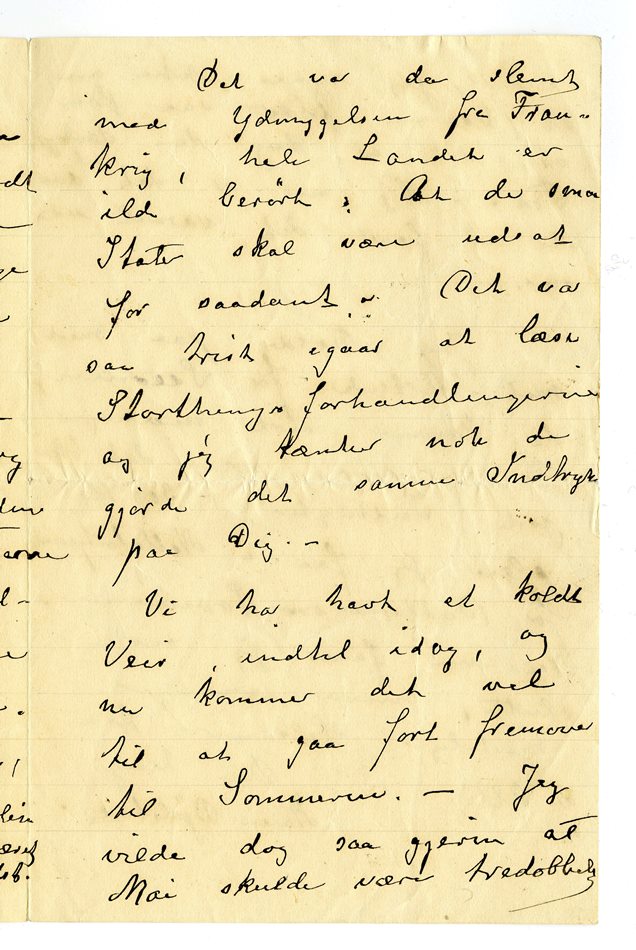 Det va da slemt
med Ydmygelsen fra Fran-
krig, hele Landet er
ilde berørt; At de smaa
Stater skal være udsat
for saadant.. Det va
saa trist igaar at læse
Storthingsforhandlingerne
og jeg tænker nok de
gjørde det samme Indtryk
paa Dig. —
Vi ha havt et koldt
Veir, indtil idag, og
nu kommer det vel
til at gaa fort fremover
til Sommeren. — Jeg
vilde dog saa gjerin at
Mai skulde være tredobbelt